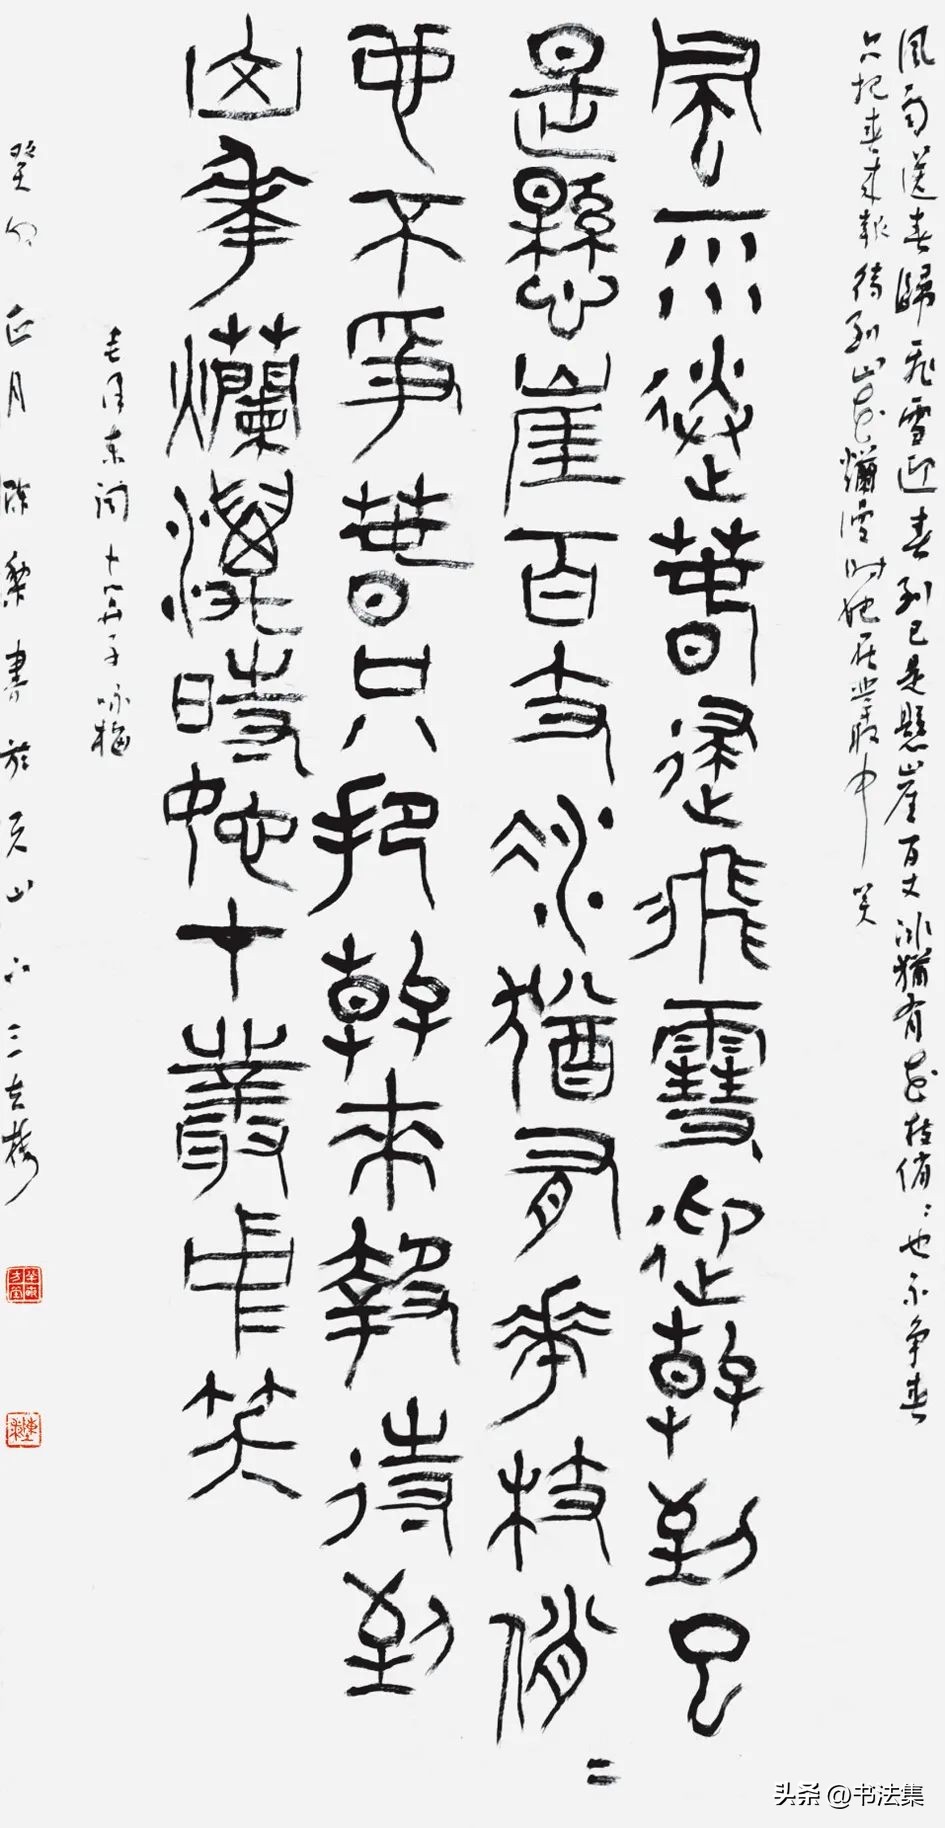 風雨送春歸飛雪迎春到已是懸崖百丈冰猶有花枝俏〻也不争春
只把春来報待到山花爛漫时她在叢中笑
風雨送春歸飛雪迎春到已
是懸崖百丈冰猶有花枝俏〻
也不爭春只把春來報待到
山花爛漫時她在叢中笑
毛澤东词卜算子咏梅
癸卯正月陈黎書於山三
头条 @书法集